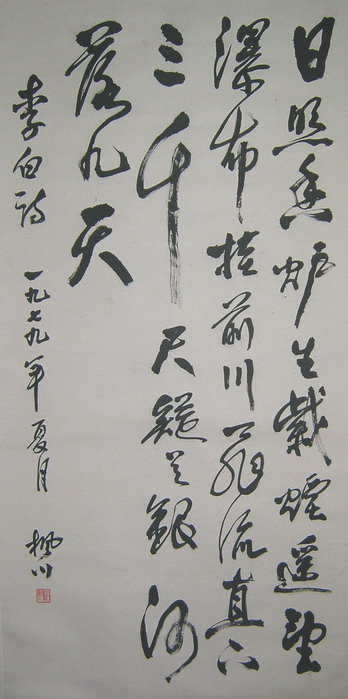 日照香炉生紫煙遥望
瀑布挂前川飛流直下
三千尺疑是銀河
落九天
李白詩 一九七九年夏月 楓川